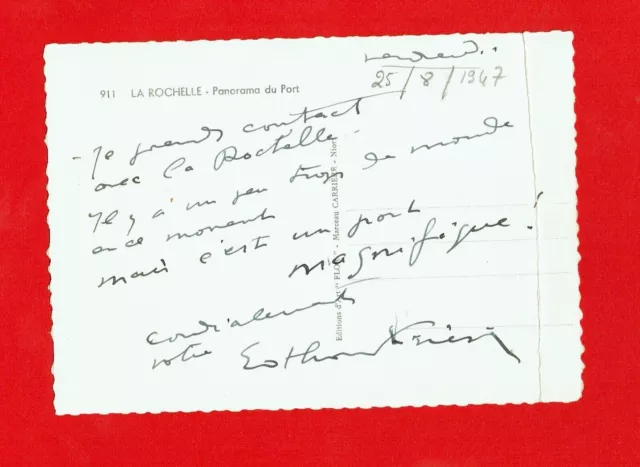 vendredi..
25/8/1947
911 LA ROCHELLE - Panorama du Port
- Je prends contact
avec La Rochelle -
Il y a un peu trop de monde
en ce moment
mais c'est un port
magnifique !
cordialement
votre Othon Friesz
Editions d'Art "FLOR" - Marceau CARRIERE - Niort